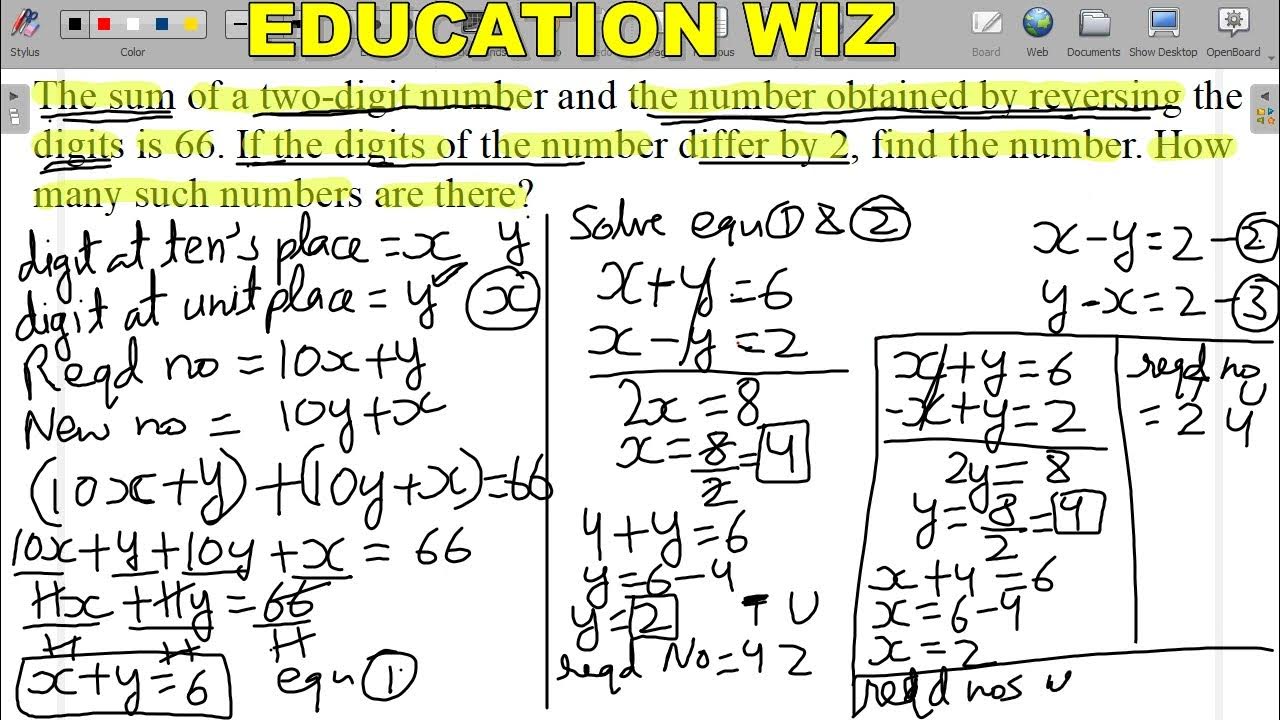 EDUCATION WIZ
Stylus
Color
Board
Web
Documents
Show Desktop
OpenBoard
The sum of a two-digit number and the number obtained by reversing the
digits is 66. If the digits of the number differ by 2, find the number. How
many such numbers are there?
digit at ten's place = x y
digit at unit place = y x
Reqd no = 10x+y
New no = 10y+x
(10x+y)+(10y+x)=66
10x+y+10y+x = 66
11x +11y = 66
11 11 11
x+y=6 equn 1
Solve equn 1 & 2
x+y=6
x-y=2
2x=8
x=8/2=4
4+y=6
y=6-4
y=2 T U
reqd No=42
x-y=2-2
y-x=2-3
x+y=6
-x+y=2
2y=8
y=8/2=4
x+4=6
x=6-4
x=2
reqd no
= 2 4
reqd nos